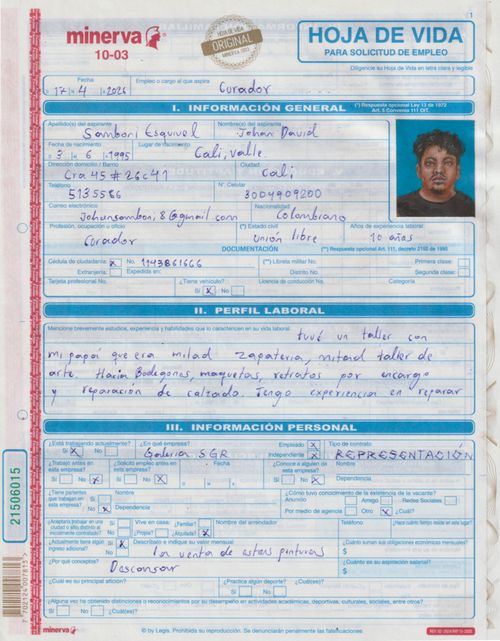 1
minerva
10-03
HOJA DE VIDA
ORIGINAL
MINERVA 2023
HOJA DE VIDA
PARA SOLICITUD DE EMPLEO
Diligencie su Hoja de Vida en letra clara y legible
Fecha
Empleo o cargo al que aspira
17 4 2026 Curador
I. INFORMACIÓN GENERAL
(*) Respuesta opcional Ley 13 de 1972
Art. 5 Convenio 111 OIT.
Apellido(s) del aspirante Nombre(s) del aspirante
Samboni Esquivel Johan David
Fecha de nacimiento Lugar de nacimiento
3 6 1995 Cali, Valle
Dirección domicilio / Barrio Ciudad
Cra 45 # 26c41 Cali
Teléfono N° Celular
5135586 3004909200
Correo electrónico Nacionalidad
Johansamboni,8@gmail.com Colombiano
Profesión, ocupación u oficio (*) Estado civil Años de experiencia laboral
Curador unión libre 10 años
DOCUMENTACIÓN (**) Respuesta opcional Art. 111, decreto 2150 de 1995
Cédula de ciudadanía: X No. 1143861666 (**) Libreta militar No. Primera clase:
Extranjería: Expedida en: Distrito No. Segunda clase:
Tarjeta profesional No. ¿Tiene vehículo? Licencia de conducción No. Categoría
Sí X No
II. PERFIL LABORAL
Mencione brevemente estudios, experiencia y habilidades que lo caractericen en su vida laboral
tuvé un taller con
mi papá que era mitad zapateria, mitad taller de
arte. Hacia Bodegones, maquetas, retratos por encargo
y reparación de calzado. Tengo experiencia en reparar
III. INFORMACIÓN PERSONAL
¿Está trabajando actualmente? ¿En qué empresa? Empleado X Tipo de contrato
Sí X No Galeria SGR Independiente X REPRESENTACIÓN
¿Trabajó antes en esta empresa? ¿Solicitó empleo antes en esta empresa? Fecha ¿Conoce a alguien de esta empresa? Nombre
Sí No X Sí No X Sí No X Dependencia
¿Tiene parientes que trabajen en esta empresa? Sí Nombre
No X Dependencia
¿Cómo tuvo conocimiento de la existencia de la vacante?
Anuncio Amigo Redes Sociales
Por medio de agencia Otro X ¿Cuál?
¿Aceptaría trabajar en una ciudad o sitio distinto al inicialmente contratado? Sí No Vive en casa: ¿Familiar? ¿Propia? ¿Alquilada? X Nombre del arrendador Teléfono ¿Hace cuánto tiempo reside en este lugar?
¿Actualmente tiene algún ingreso adicional? Sí No X Descríbalo e indique su valor mensual ¿Cuánto suman sus obligaciones económicas mensuales?
la venta de estas pinturas $
¿Por qué conceptos? ¿Cuánto es su aspiración salarial?
Descansar $
¿Cuál es su principal afición? ¿Practica algún deporte? ¿Cuál/es?
Sí No
Alguna vez ha obtenido distinciones o reconocimientos por su desempeño en actividades académicas, deportivas, culturales, sociales, entre otros?
Sí No ¿Cuál(es)?
minerva
© by Legis. Prohibida su reproducción. Se denunciarán penalmente las falsificaciones
21506015
7 702124 007615